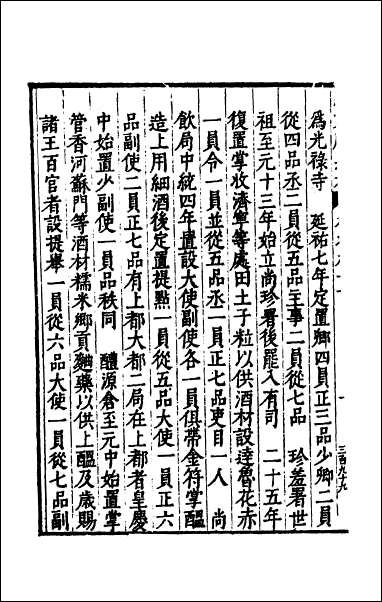 爲光祿寺　延祐七年定置卿四員正三品少卿二員
從四品丞二員從五品主事二員從七品　珍羞署世
祖至元十三年始立尚珍署後罷入有司　二十五年
復置掌收濟寧等處田土子粒以供酒材設達魯花赤
一員令一員並從五品丞一員正七品吏目一人　尚
飲局中統四年置設大使副使各一員俱帶金符掌醖
造上用細酒後定置提點一員從五品大使一員正六
品副使二員正七品有上都大都二局在上都者皇慶
中始置少副使一員品秩同　醴源倉至元中始置掌
管香河蘇門等酒材糯米鄉貢麯藥以供上醖及歲賜
諸王百官者設提舉一員從六品大使一員從七品副
三百九十九